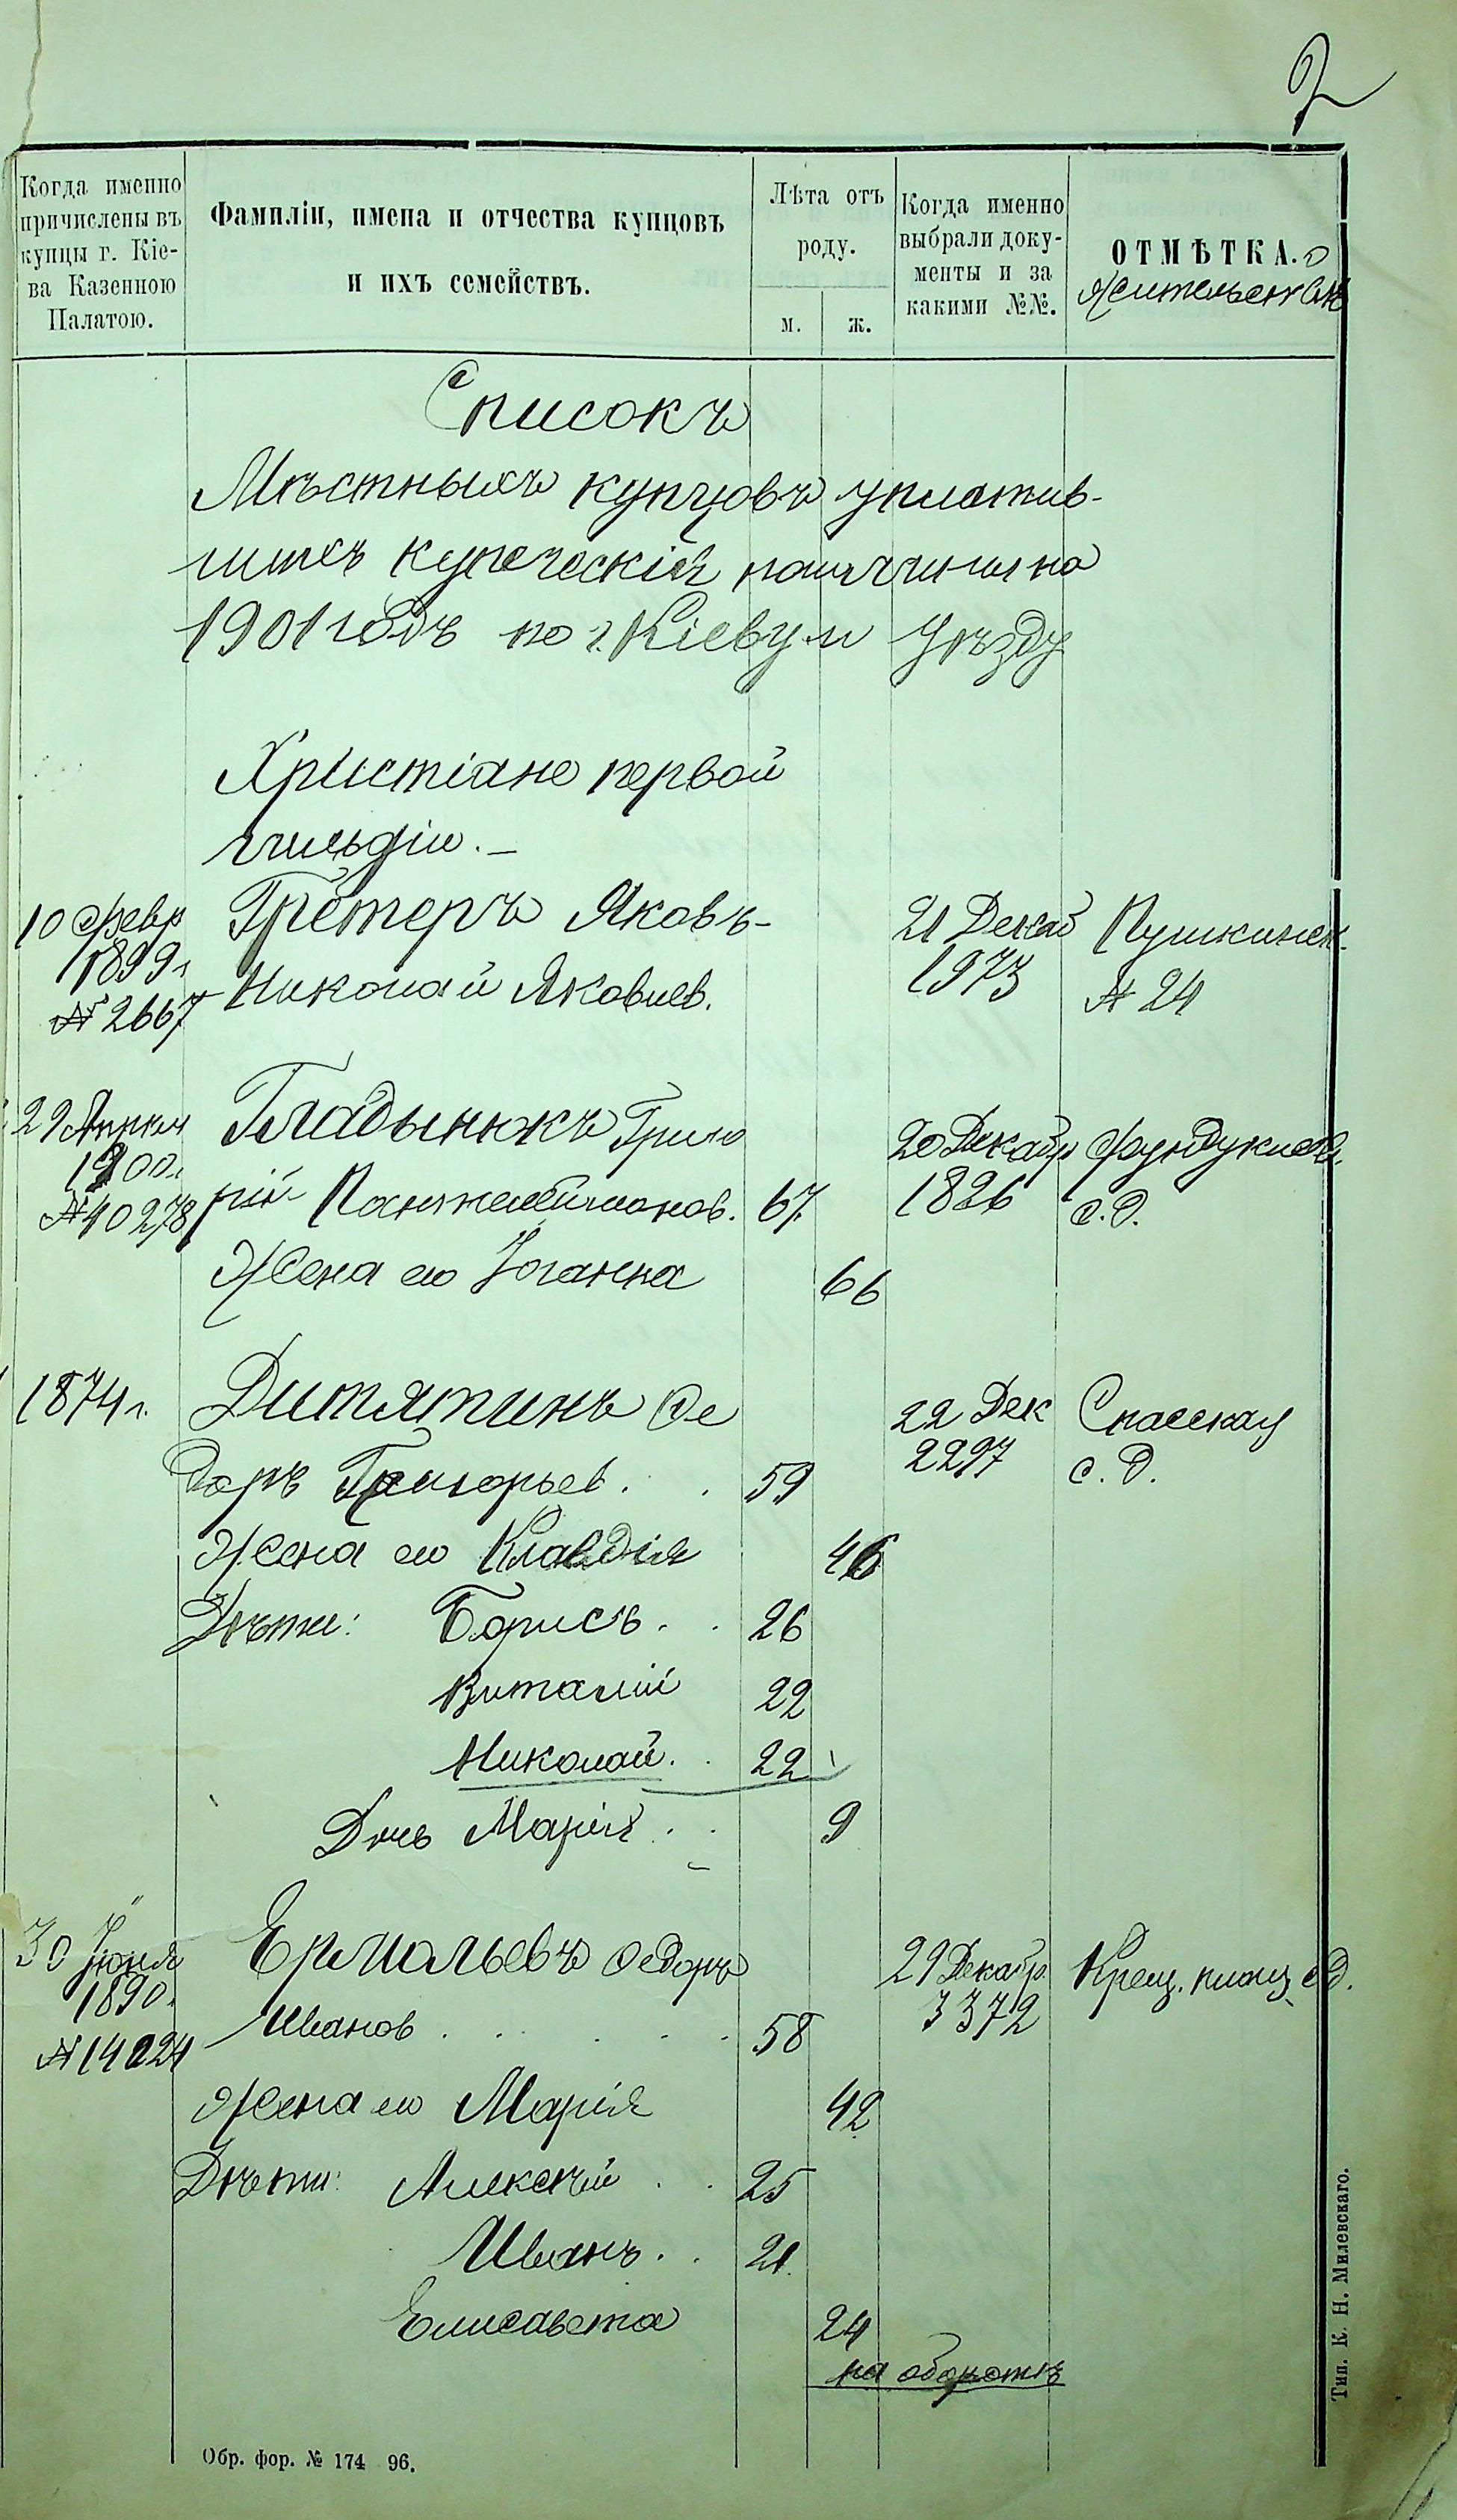 2
Когда именно
причислены въ
купцы г. Кіе-
ва Казенною
Палатою.
Фамиліи, имена и отчества купцовъ
и ихъ семействъ.
Лѣта отъ
роду.
м. ж.
Когда именно
выбрали доку-
менты и за
какими №№.
ОТМѢТКА. о
Жительствѣ
Списокъ
Мѣстныхъ купцовъ уплатив-
шихъ купеческія пошлины на
1901 годъ по г. Кіеву и уѣзду
Христіане первой
гильдіи.-
10 Февр Гретеръ Яковъ- 21 Декаб Пушкинск.
1899 г Николай Яковлев. 1973 № 24
№ 2667
29 Апрѣл Гладынюкъ Григо 20 Декабр Фундукл.
1900 г. рій Пантелеймонов. 67. 1826 с. д.
№ 40278
Жена его Іоганна 66
1874 г. Дитятинъ Ѳе 22 Дек Спасская
доръ Григорьев. . 59 2297 с. д.
Жена его Клавдія 46
Дѣти: Борисъ. . 26
Виталій 22
Николай. . 22
Дочь Марія . . 9
30 Іюня Ермольевъ Ѳедоръ 29 Декабр. Крещ. площ. с д.
1890. Иванов . . . . . 58 3372
№ 14024
Жена его Марія 42
Дѣти: Алексѣй . . 25
Иванъ. . 21.
Елисавета 24
на оборотѣ
Обр. фор. № 174 96.
Тип. К. Н. Милевскаго.